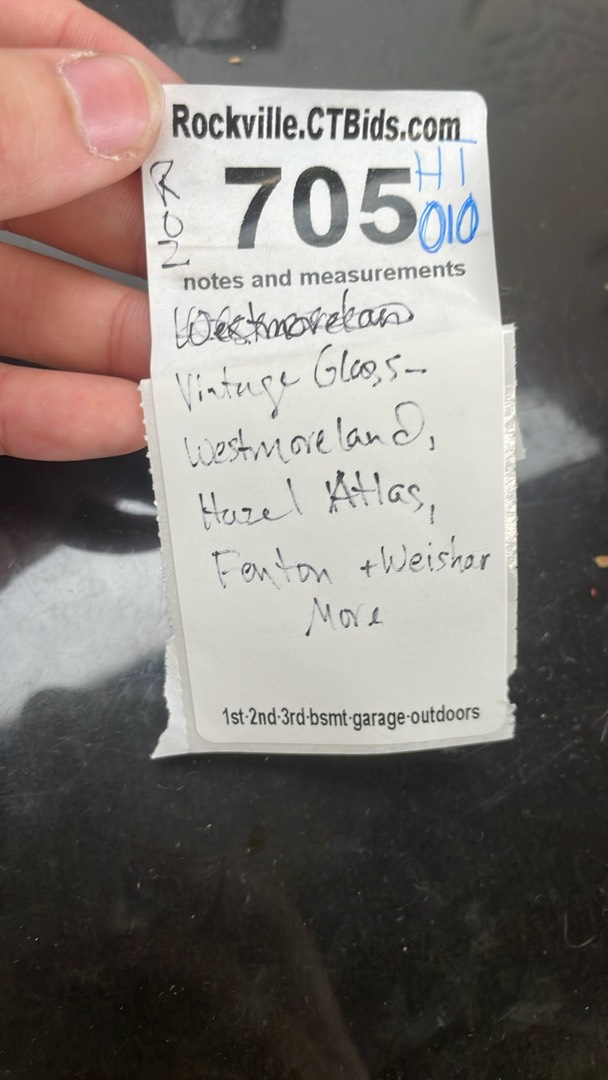 Rockville.CTBids.com
R02
705
HI
010
notes and measurements
Westmorelan
Vintage Glass-
Westmoreland,
Hazel Atlas,
Fenton + Weishar
More
1st-2nd-3rd-bsmt-garage-outdoors